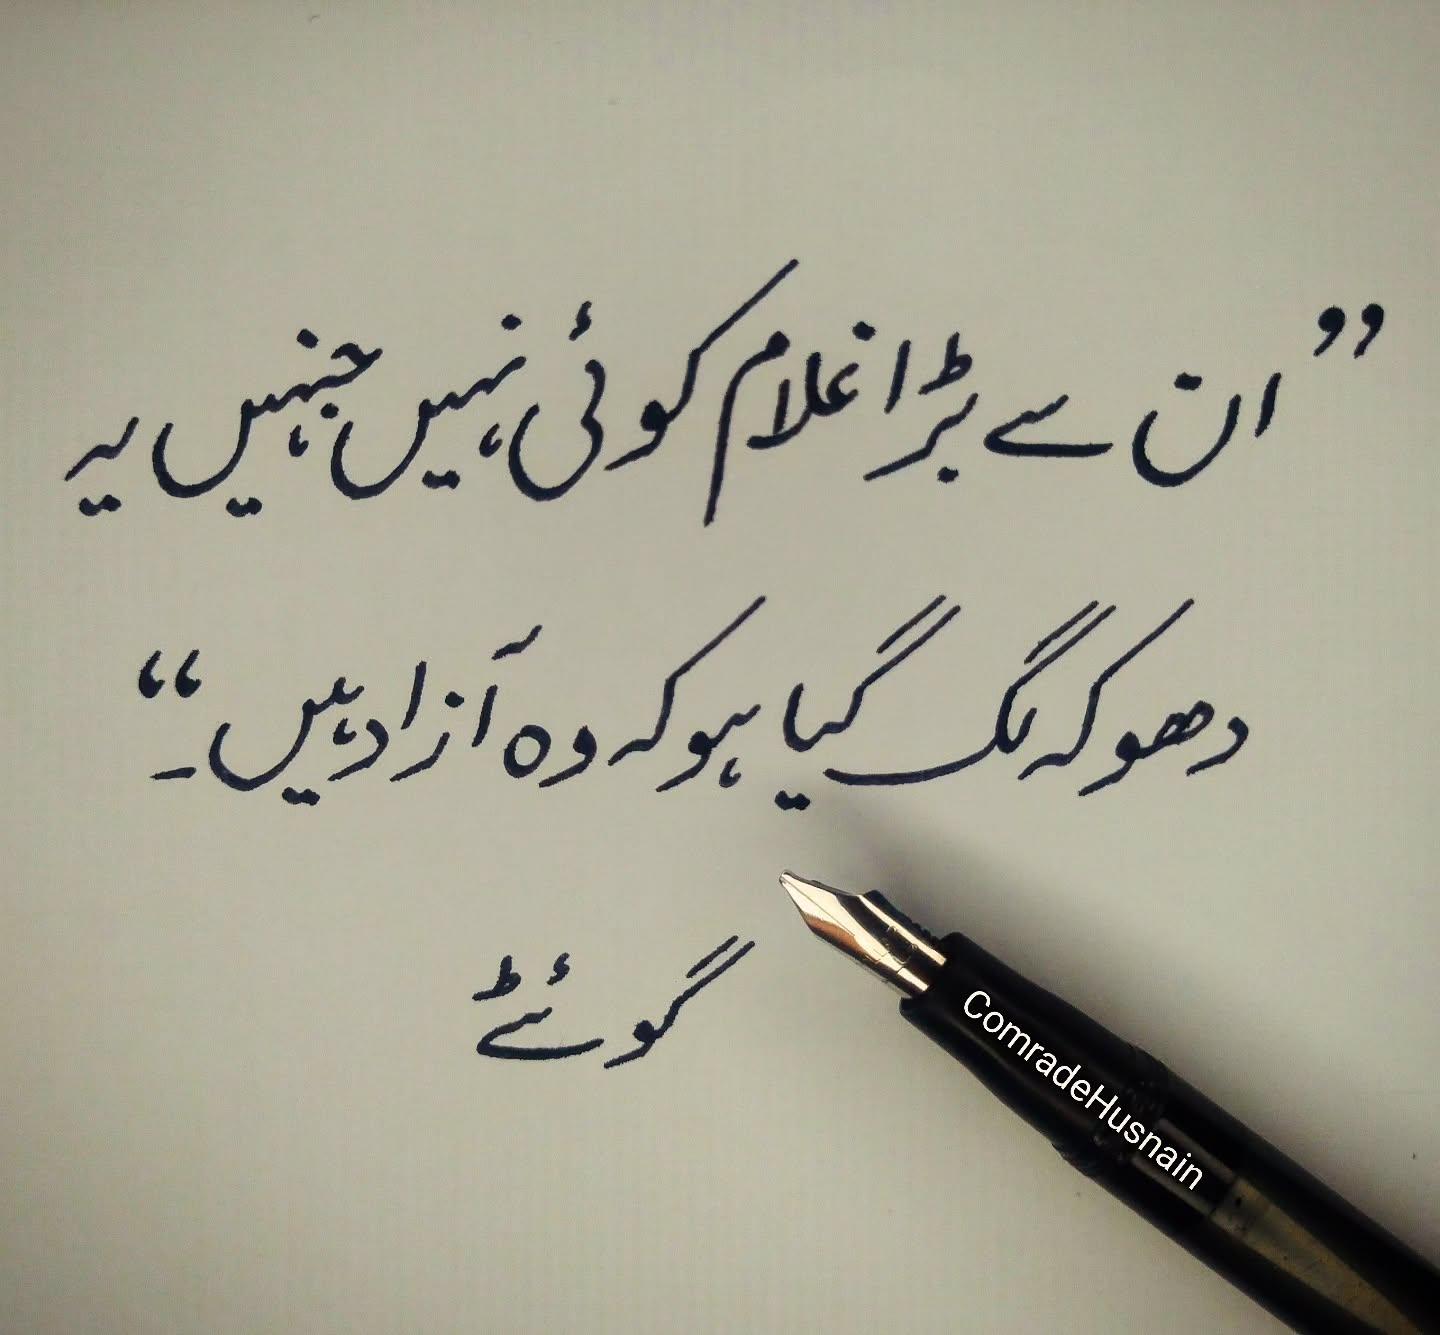 ”ان سے بڑا غلام کوئی نہیں جنہیں یہ
دھوکہ لگ گیا ہو کہ وہ آزاد ہیں۔“
گوئٹے
ComradeHusnain